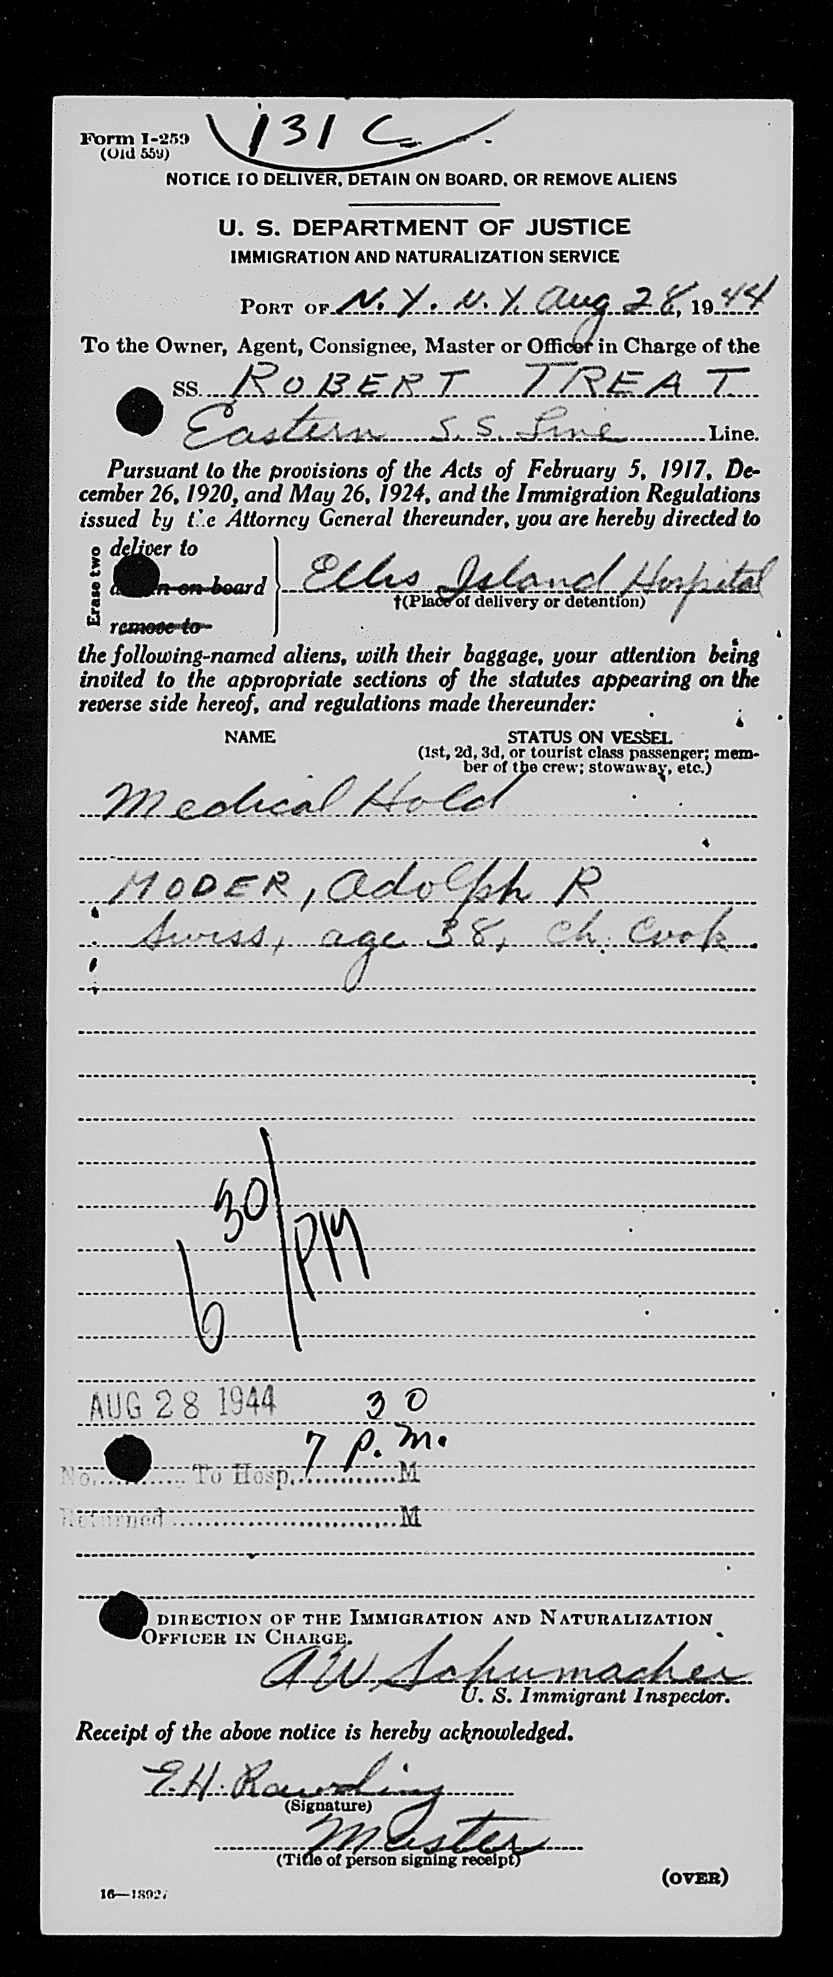 131 C
Form I-259
(Old 559)
NOTICE TO DELIVER, DETAIN ON BOARD, OR REMOVE ALIENS
U. S. DEPARTMENT OF JUSTICE
IMMIGRATION AND NATURALIZATION SERVICE
PORT OF N. Y. N. Y. Aug 28, 1944
To the Owner, Agent, Consignee, Master or Officer in Charge of the
SS. ROBERT TREAT
Eastern S. S. Line Line.
Pursuant to the provisions of the Acts of February 5, 1917, De-
cember 26, 1920, and May 26, 1924, and the Immigration Regulations
issued by the Attorney General thereunder, you are hereby directed to
Erase two
deliver to
on board
remove to
Ellis Island Hospital
†(Place of delivery or detention)
the following-named aliens, with their baggage, your attention being
invited to the appropriate sections of the statutes appearing on the
reverse side hereof, and regulations made thereunder:
NAME STATUS ON VESSEL
(1st, 2d, 3d, or tourist class passenger; mem-
ber of the crew; stowaway, etc.)
Medical Hold
MODER, Adolph R
Swiss, age 38, Ch. Cook
6 30/PM
AUG 28 1944
7 30 P.M.
No. To Hosp. M
Returned M
DIRECTION OF THE IMMIGRATION AND NATURALIZATION
OFFICER IN CHARGE.
A W Schumacher
U. S. Immigrant Inspector.
Receipt of the above notice is hereby acknowledged.
E. H. Rawding
(Signature)
Master
(Title of person signing receipt)
(OVER)
16—18927